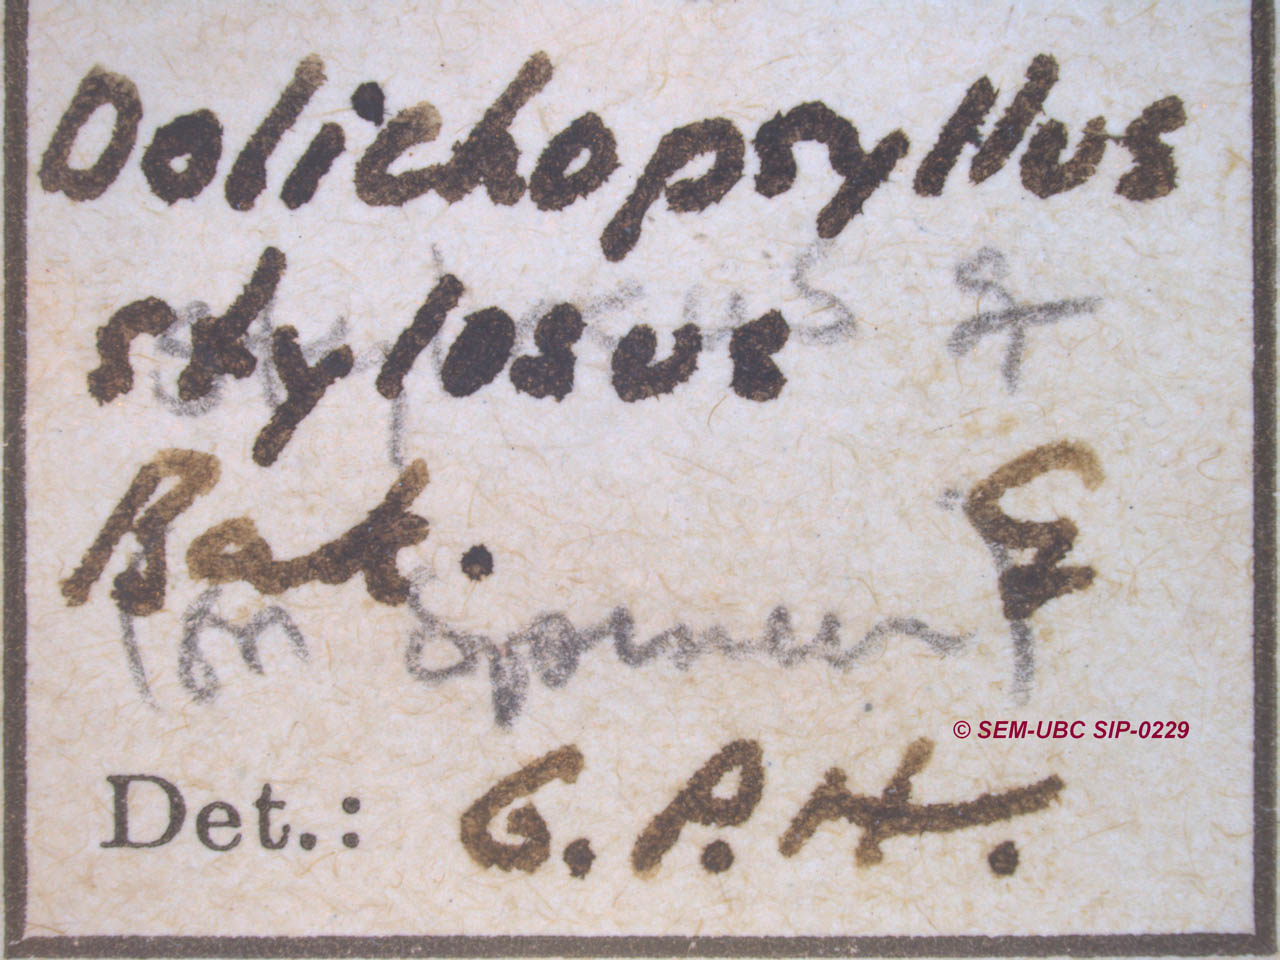 Dolichopsyllus
stylosus ♀
Bak.
(on Spencer)
© SEM-UBC SIP-0229
Det.: G.P.H.